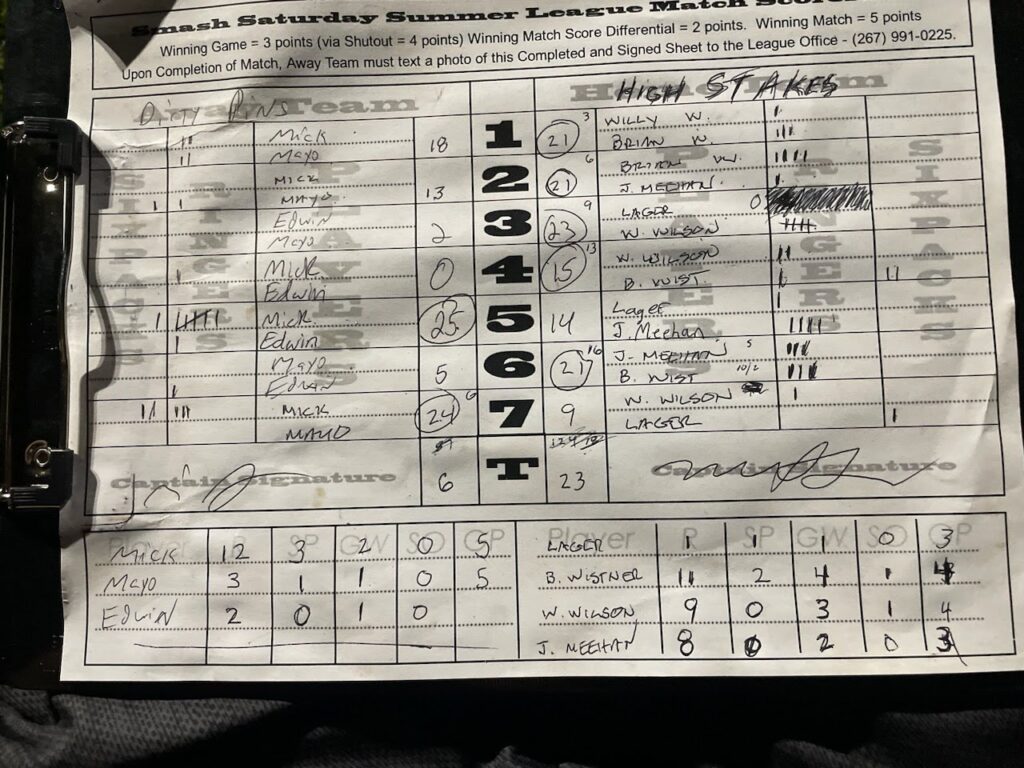 Smash Saturday Summer League Match
Winning Game = 3 points (via Shutout = 4 points) Winning Match Score Differential = 2 points. Winning Match = 5 points
Upon Completion of Match, Away Team must text a photo of this Completed and Signed Sheet to the League Office - (267) 991-0225.
Dirty Pins Team HIGH STAKES
Mick 18 1 21 3 WILLY W.
Mayo BRIAN W.
MICK 13 2 21 6 BRIAN W.
MAYO J. MEEHAN
Edwin 2 3 23 9 LAGER 0
Mayo W. WILSON
Mick 0 4 15 13 W. WILSON
Edwin B. WIST.
Mick 25 5 14 Lager
Edwin J. Meehan
Mayo 5 6 21 16 J. MEEHAN 5
Edwin B. WIST 10/2
MICK 24 6 7 9 W. WILSON
MAYO LAGER
Captain Signature 6 T 23 Captain Signature
SIXPACKS RINGERS PLAYERS PLAYERS RINGERS SIXPACKS
Player R SP GW SO GP Player R SP GW SO GP
MICK 12 3 2 0 5 LAGER 1 1 1 0 3
MAYO 3 1 1 0 5 B. WISTNER 11 2 4 1 4
EDWIN 2 0 1 0 W. WILSON 9 0 3 1 4
J. MEEHAN 8 0 2 0 3